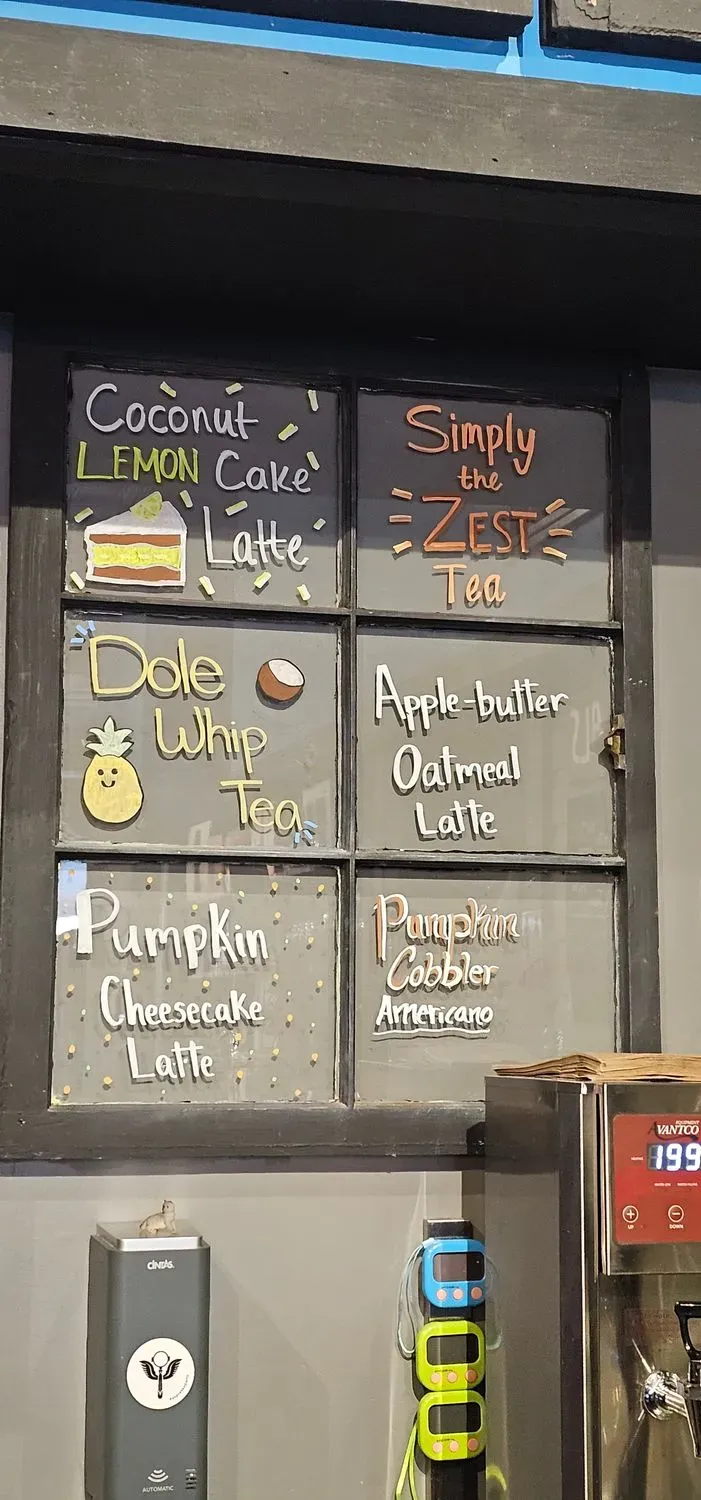 Coconut
LEMON Cake
Latte
Simply
the
ZEST
Tea
Dole
Whip
Tea
Apple-butter
Oatmeal
Latte
Pumpkin
Cheesecake
Latte
Pumpkin
Cobbler
Americano
EQUIPMENT
AVANTCO
199
UP
DOWN
CINTAS.
AUTOMATIC